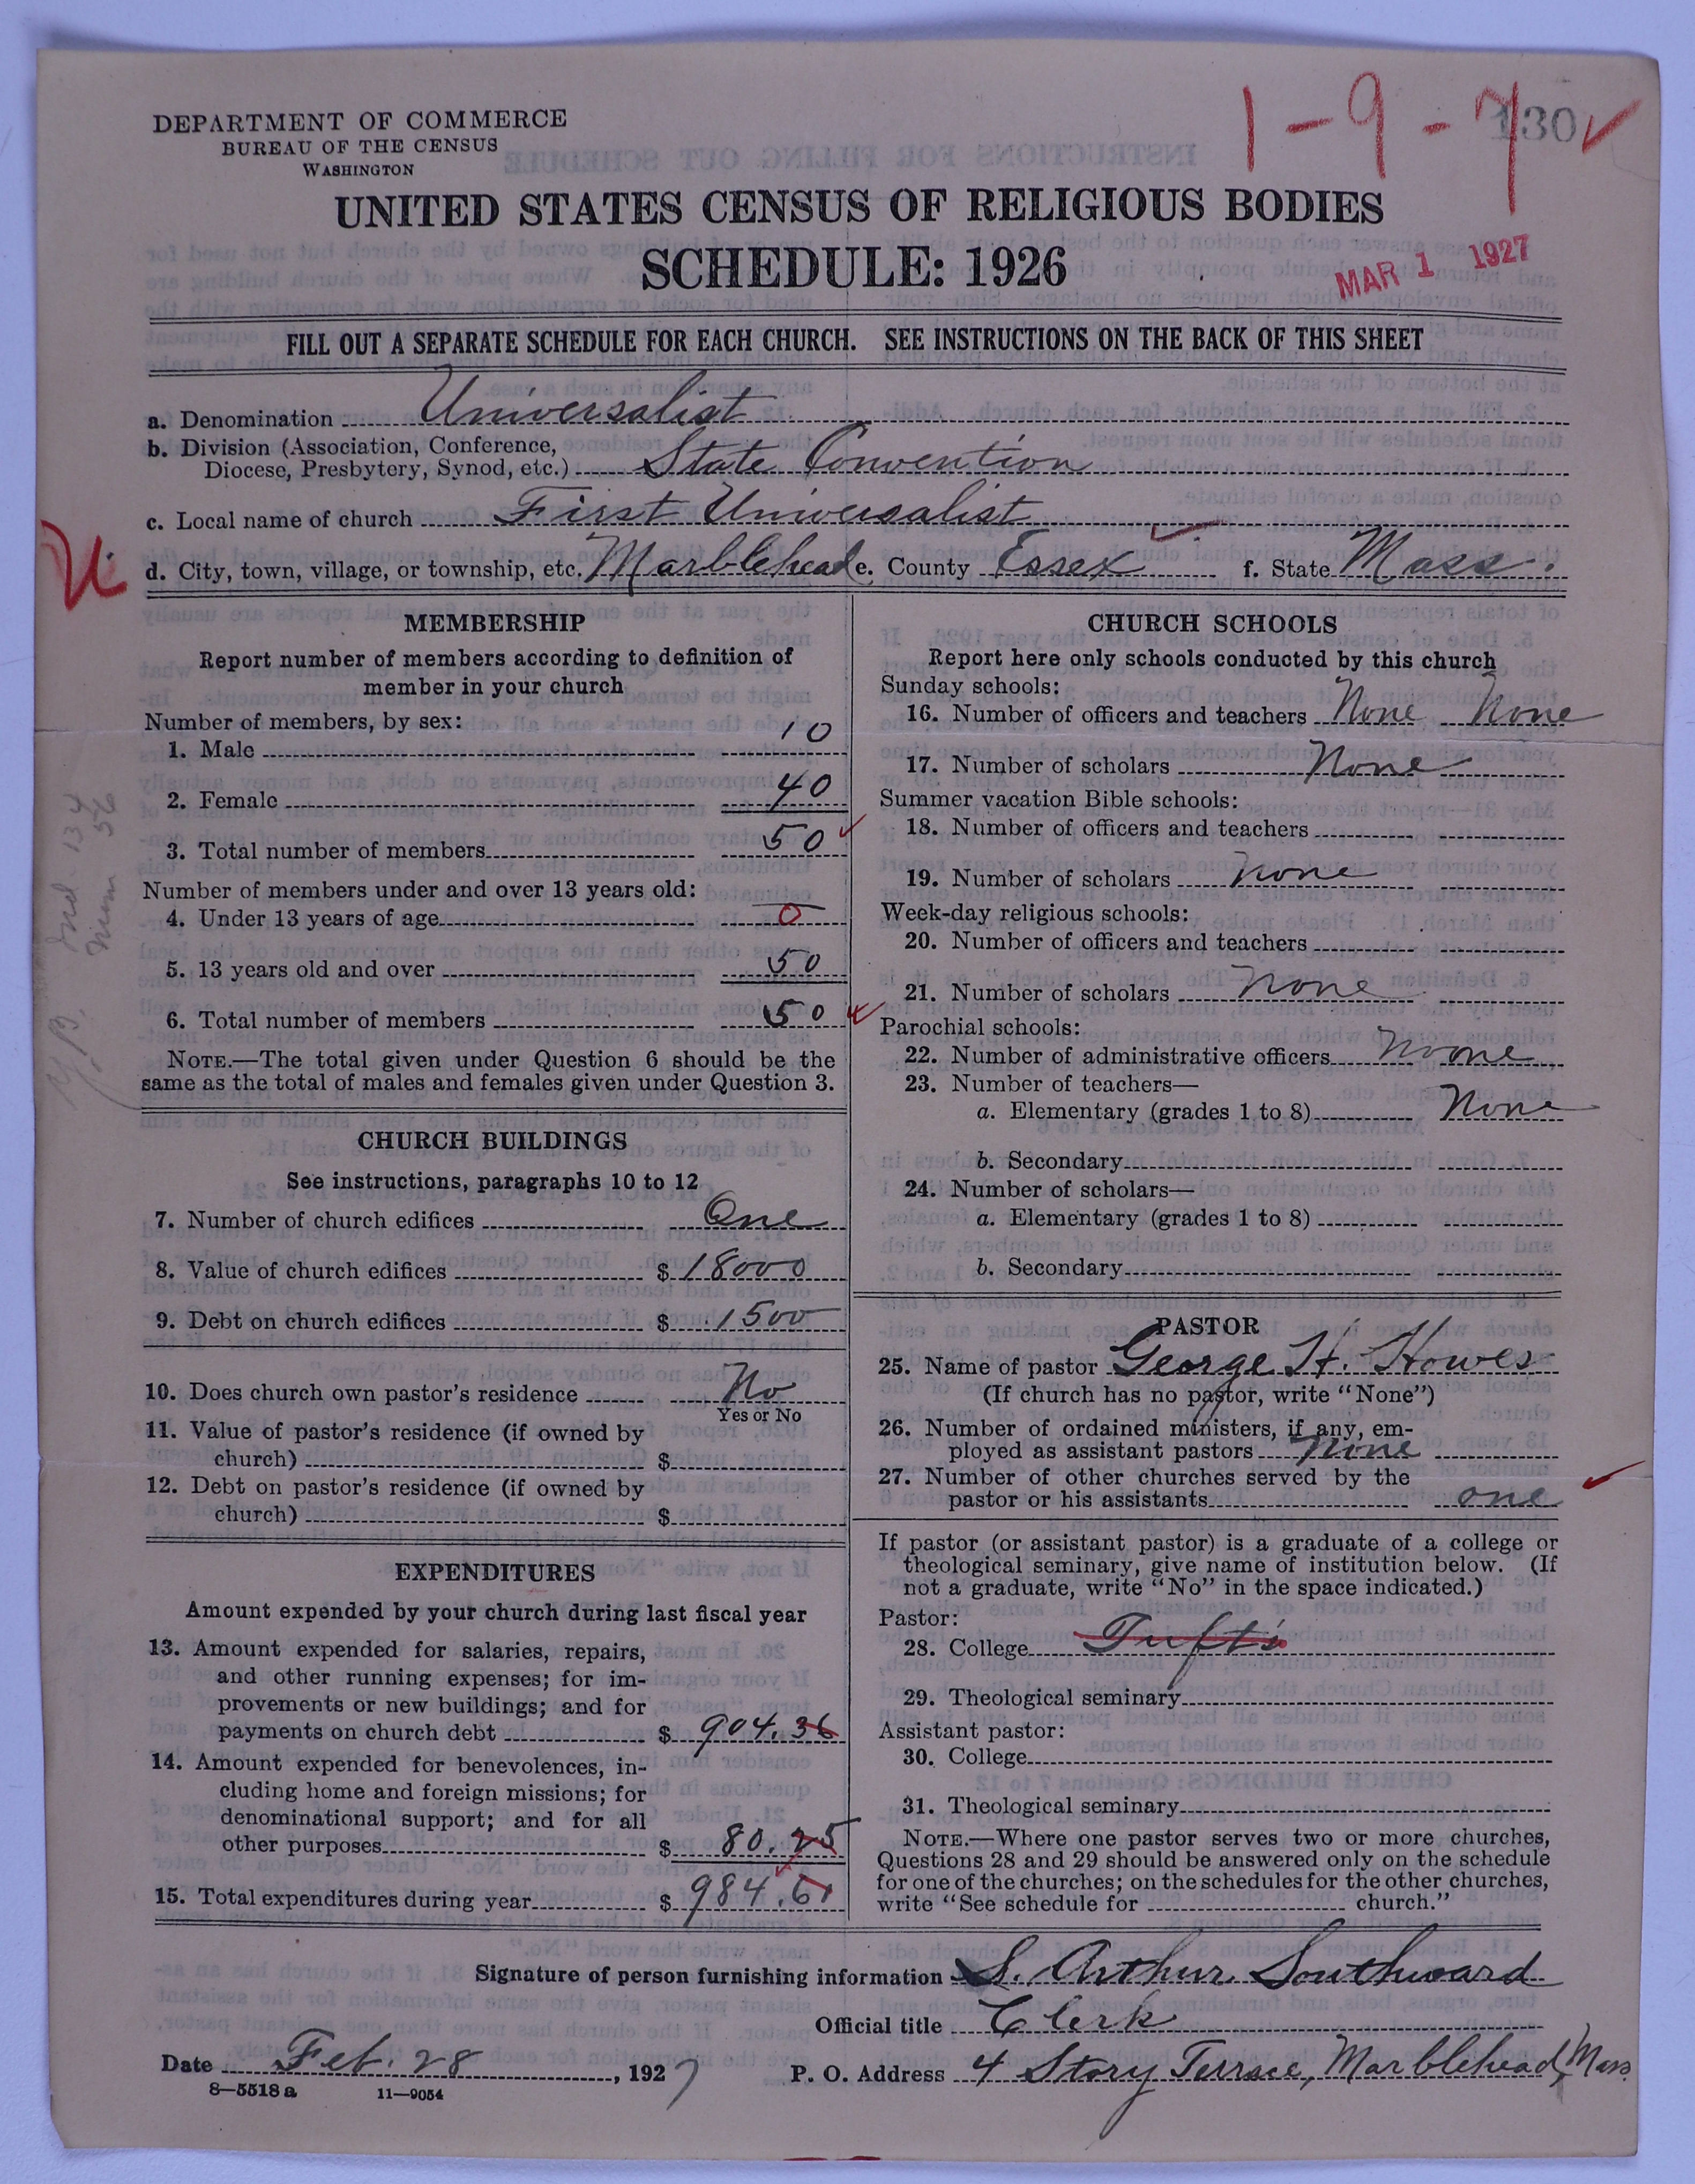 DEPARTMENT OF COMMERCE
BUREAU OF THE CENSUS
WASHINGTON
1-9-7
130
UNITED STATES CENSUS OF RELIGIOUS BODIES
SCHEDULE: 1926
MAR 1 1927
FILL OUT A SEPARATE SCHEDULE FOR EACH CHURCH. SEE INSTRUCTIONS ON THE BACK OF THIS SHEET
a. Denomination Universalist
b. Division (Association, Conference,
Diocese, Presbytery, Synod, etc.) State Convention
c. Local name of church First Universalist
d. City, town, village, or township, etc. Marblehead e. County Essex f. State Mass.
MEMBERSHIP
Report number of members according to definition of
member in your church
Number of members, by sex:
1. Male 10
2. Female 40
3. Total number of members 50
Number of members under and over 13 years old:
4. Under 13 years of age 0
5. 13 years old and over 50
6. Total number of members 50
NOTE.—The total given under Question 6 should be the
same as the total of males and females given under Question 3.
CHURCH BUILDINGS
See instructions, paragraphs 10 to 12
7. Number of church edifices One
8. Value of church edifices $ 18000
9. Debt on church edifices $ 1500
10. Does church own pastor's residence No
Yes or No
11. Value of pastor's residence (if owned by
church) $
12. Debt on pastor's residence (if owned by
church) $
EXPENDITURES
Amount expended by your church during last fiscal year
13. Amount expended for salaries, repairs,
and other running expenses; for im-
provements or new buildings; and for
payments on church debt $ 904.36
14. Amount expended for benevolences, in-
cluding home and foreign missions; for
denominational support; and for all
other purposes $ 80.25
15. Total expenditures during year $ 984.61
CHURCH SCHOOLS
Report here only schools conducted by this church
Sunday schools:
16. Number of officers and teachers None None
17. Number of scholars None
Summer vacation Bible schools:
18. Number of officers and teachers
19. Number of scholars None
Week-day religious schools:
20. Number of officers and teachers
21. Number of scholars None
Parochial schools:
22. Number of administrative officers None
23. Number of teachers—
a. Elementary (grades 1 to 8) None
b. Secondary
24. Number of scholars—
a. Elementary (grades 1 to 8)
b. Secondary
PASTOR
25. Name of pastor George H. Howes
(If church has no pastor, write "None")
26. Number of ordained ministers, if any, em-
ployed as assistant pastors None
27. Number of other churches served by the
pastor or his assistants one
If pastor (or assistant pastor) is a graduate of a college or
theological seminary, give name of institution below. (If
not a graduate, write "No" in the space indicated.)
Pastor:
28. College Tufts
29. Theological seminary
Assistant pastor:
30. College
31. Theological seminary
NOTE.—Where one pastor serves two or more churches,
Questions 28 and 29 should be answered only on the schedule
for one of the churches; on the schedules for the other churches,
write "See schedule for church."
Signature of person furnishing information S. Arthur Southward
Official title Clerk
Date Feb. 28, 1927 P. O. Address 4 Story Terrace, Marblehead, Mass.
8—5518 a 11—9054